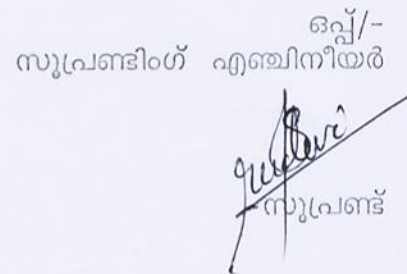 ഒപ്പ്/-
സുപ്രണ്ടിംഗ് എഞ്ചിനീയർ
സുപ്രണ്ട്